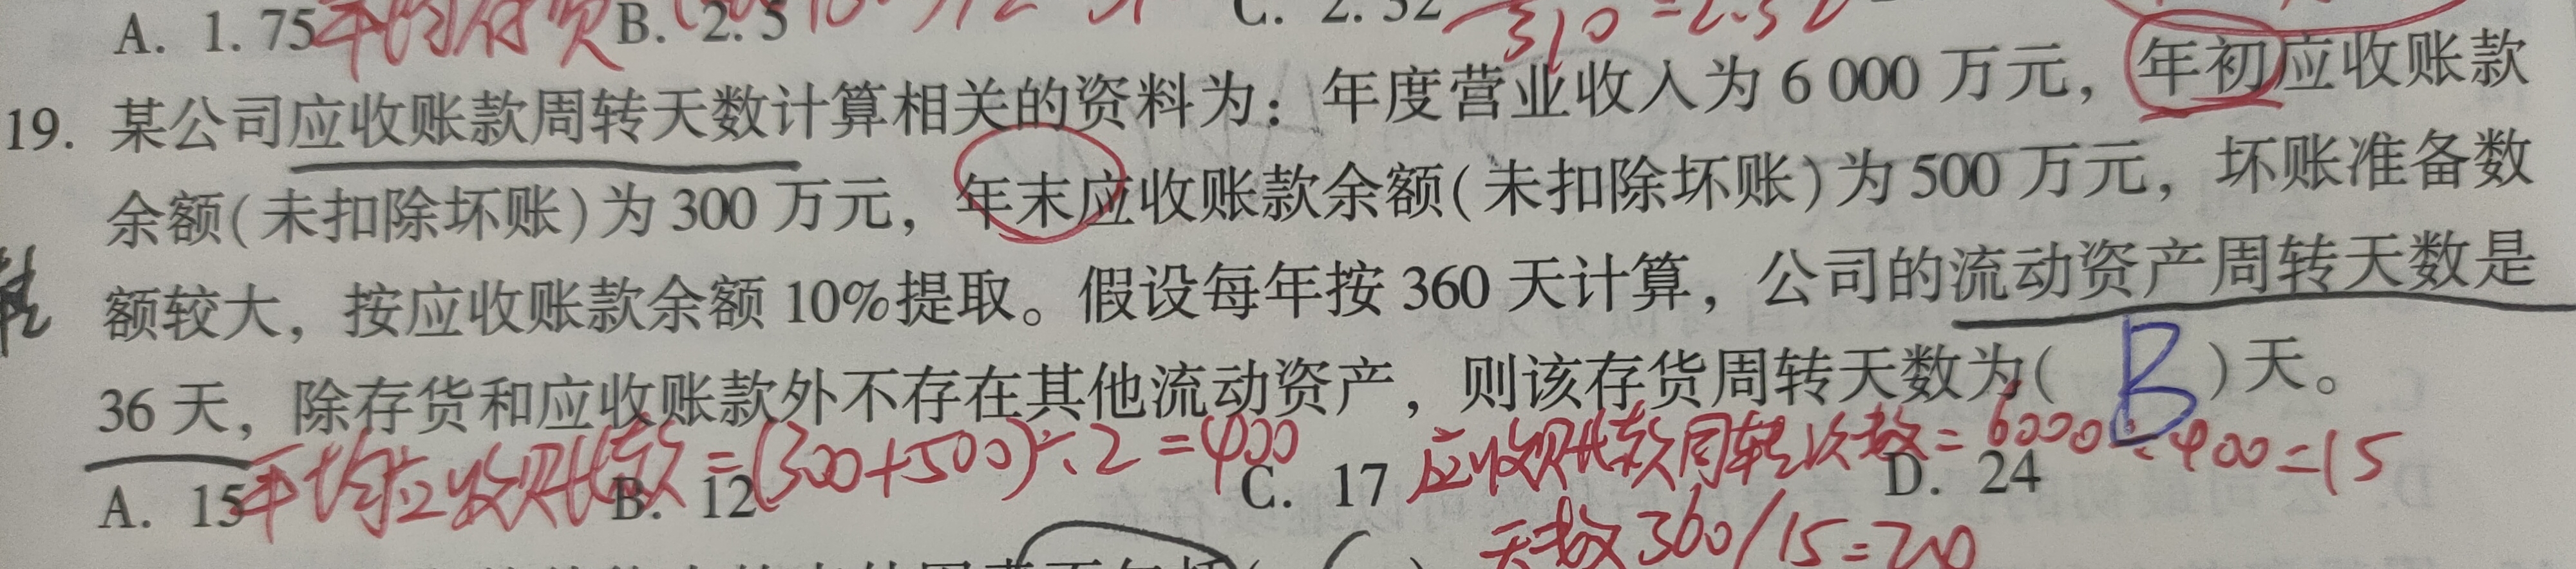 A. 1.75 平均存货 B. 2.5 C. 2.32 310 =2.32
19. 某公司应收账款周转天数计算相关的资料为：年度营业收入为 6 000 万元，年初应收账款
余额(未扣除坏账)为 300 万元，年末应收账款余额(未扣除坏账)为 500 万元，坏账准备数
额较大，按应收账款余额 10%提取。假设每年按 360 天计算，公司的流动资产周转天数是
36 天，除存货和应收账款外不存在其他流动资产，则该存货周转天数为( B )天。
平均应收账款=(300+500)÷2=400 应收账款周转次数=6000÷400=15
A. 15 B. 12 C. 17 D. 24
天数 360/15=20